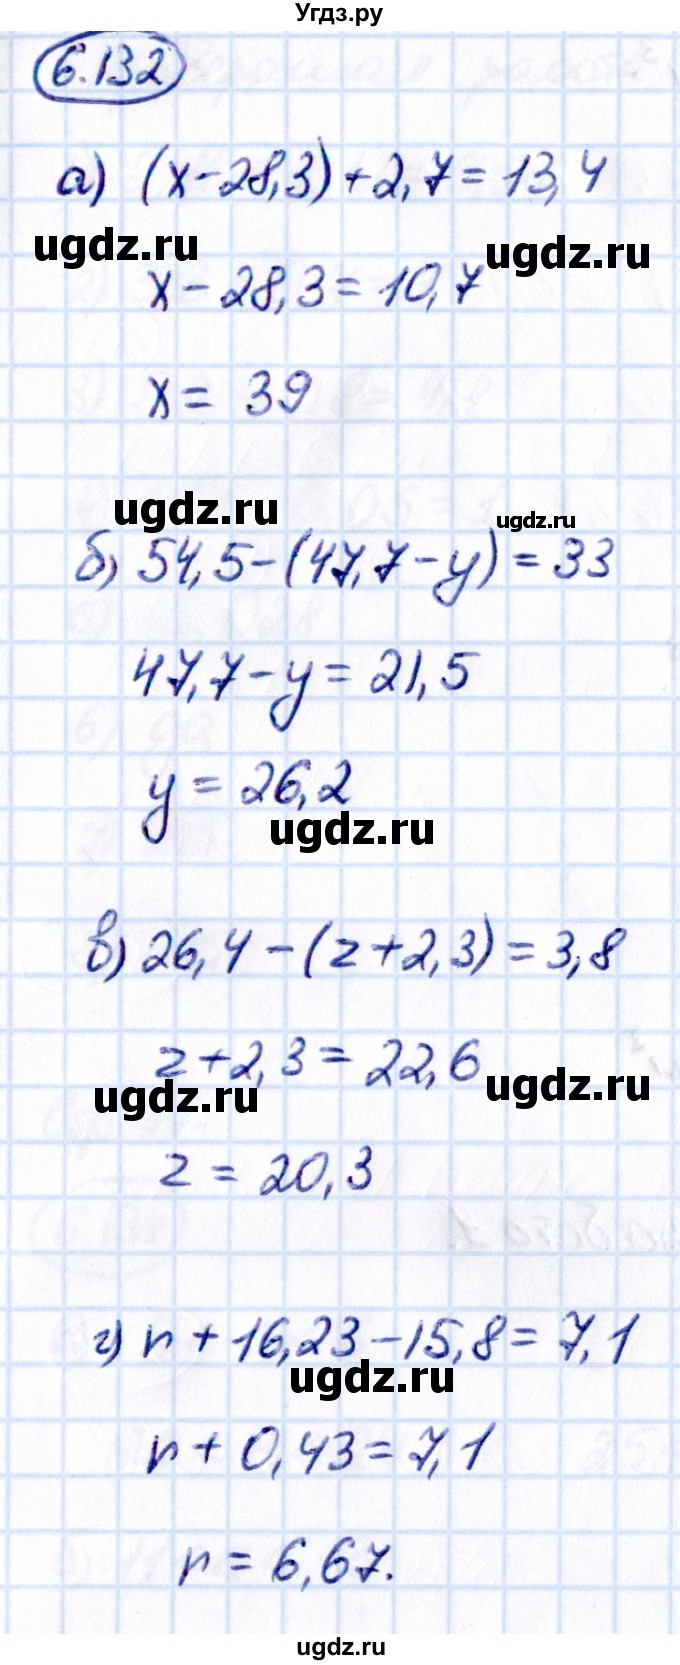 Угдз.ру
6.132
а) (x-28,3)+2,7=13,4
ugdz.ru ugdz.ru
x-28,3=10,7
x= 39
ugdz.ru ugdz.ru
б) 54,5-(47,7-y)=33
47,7-y=21,5
y=26,2
ugdz.ru
в) 26,4-(z+2,3)=3,8
z+2,3=22,6
ugdz.ru ugdz.ru
z=20,3
г) n+16,23-15,8=7,1
ugdz.ru
n+0,43=7,1
n=6,67.
ugdz.ru